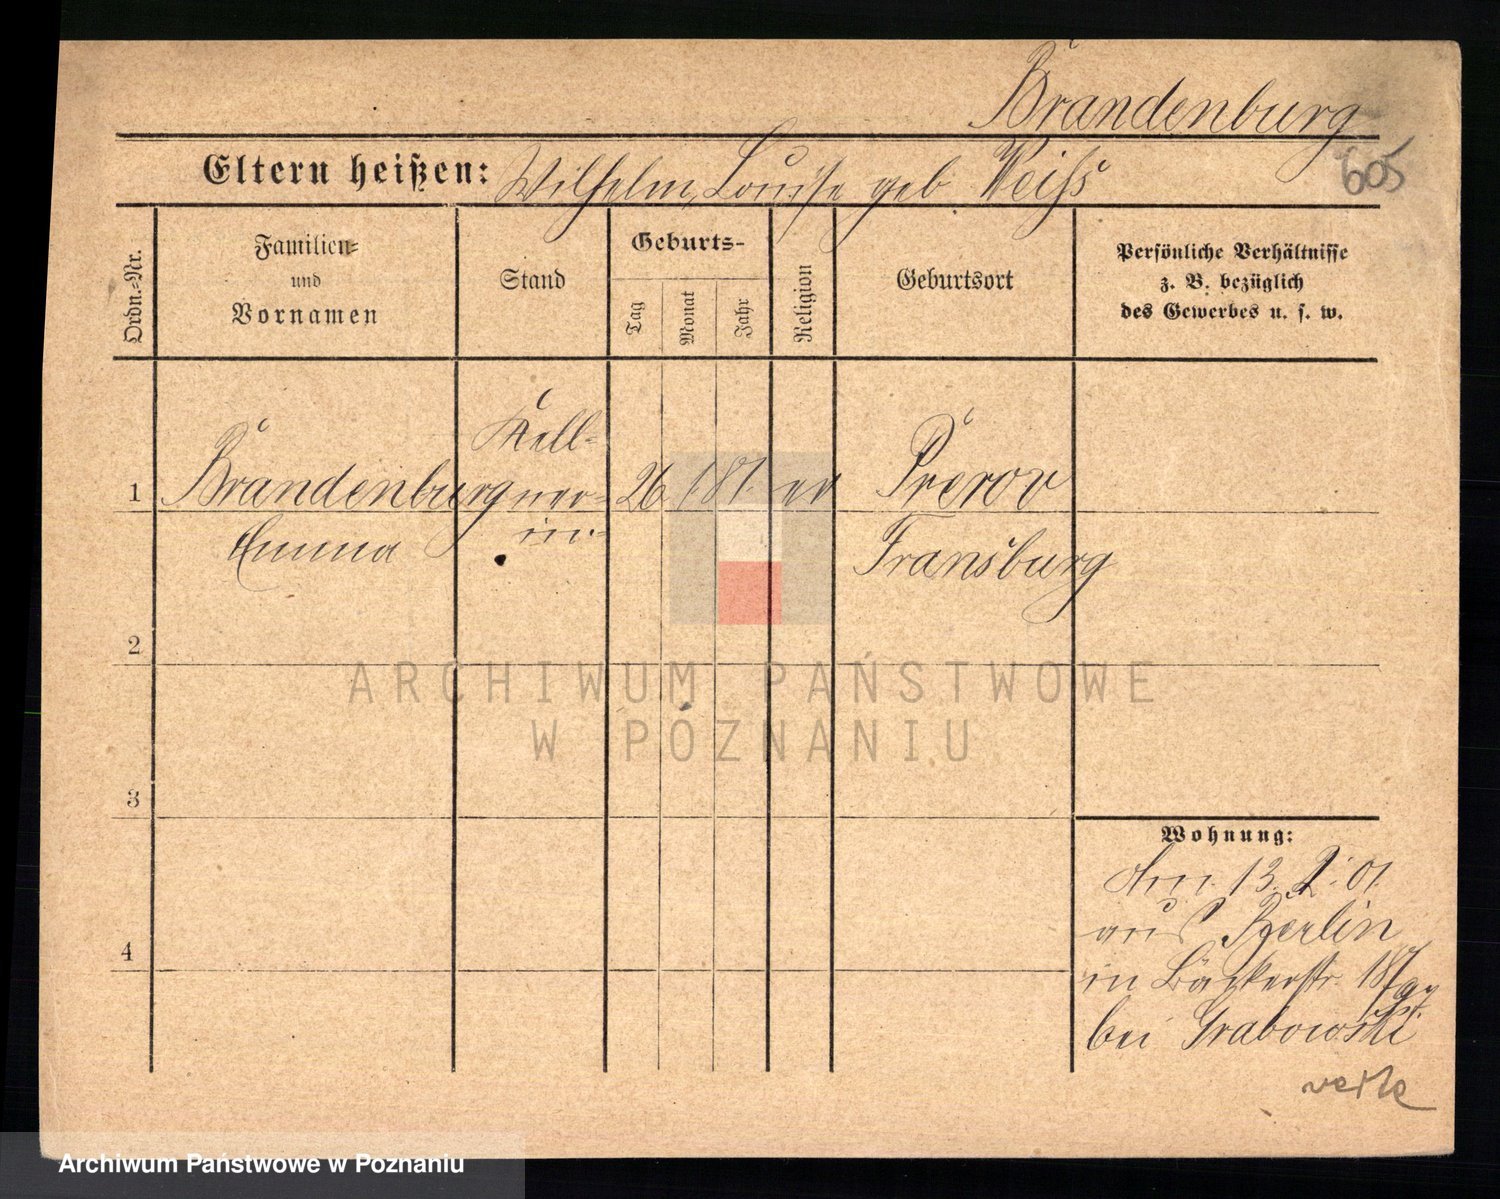 Brandenburg
605
Eltern heißen: Wilhelm, Louise geb. Weiss
Ordn.-Nr.
Familien-
und
Vornamen
Stand
Geburts-
Tag
Monat
Jahr
Religion
Geburtsort
Persönliche Verhältnisse
z. B. bezüglich
des Gewerbes u. s. w.
1
Brandenburg
Emma
Kell-
ner-
in.
26. 1. 81.
ev
Prerov
Fransburg
2
3
4
Wohnung:
Am 13. 2. 01.
aus Berlin
in Bäckerstr. 18
bei Grabowski
ARCHIWUM PAŃSTWOWE
W POZNANIU
Archiwum Państwowe w Poznaniu